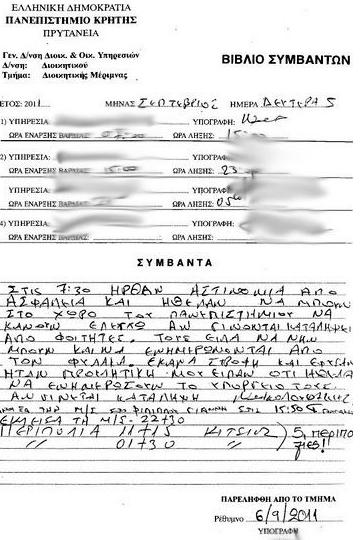 ΕΛΛΗΝΙΚΗ ΔΗΜΟΚΡΑΤΙΑ
ΠΑΝΕΠΙΣΤΗΜΙΟ ΚΡΗΤΗΣ
ΠΡΥΤΑΝΕΙΑ
Γεν. Δ/νση Διοικ. & Οικ. Υπηρεσιών
Δ/νση: Διοικητικού
Τμήμα: Διοικητικής Μέριμνας
ΒΙΒΛΙΟ ΣΥΜΒΑΝΤΩΝ
ΕΤΟΣ: 2011 ΜΗΝΑΣ ΣΕΠΤΕΒΡΙΟΣ ΗΜΕΡΑ ΔΕΥΤΕΡΑ 5
1) ΥΠΗΡΕΣΙΑ: ΥΠΟΓΡΑΦΗ:
ΩΡΑ ΕΝΑΡΞΗΣ ΒΑΡΔΙΑΣ ΩΡΑ ΛΗΞΗΣ:
2) ΥΠΗΡΕΣΙΑ: ΥΠΟΓΡΑΦΗ:
ΩΡΑ ΕΝΑΡΞΗΣ ΒΑΡΔΙΑΣ 15:00 ΩΡΑ ΛΗΞΗΣ: 23
ΥΠΗΡΕΣΙΑ: ΥΠΟΓΡΑΦΗ:
ΩΡΑ ΕΝΑΡΞΗΣ ΩΡΑ ΛΗΞΗΣ:
4) ΥΠΗΡΕΣΙΑ: ΥΠΟΓΡΑΦΗ:
ΩΡΑ ΕΝΑΡΞΗΣ ΒΑΡΔΙΑΣ ΩΡΑ ΛΗΞΗΣ:
ΣΥΜΒΑΝΤΑ
ΣΤΙΣ 7:30 ΗΡΘΑΝ ΑΣΤΙΝΟΜΙΑ ΑΠΟ
ΑΣΦΑΛΕΙΑ ΚΑΙ ΗΘΕΛΑΝ ΝΑ ΜΠΟΥΝ
ΣΤΟ ΧΩΡΟ ΤΟΥ ΠΑΝΕΠΙΣΤΗΜΙΟΥ ΝΑ
ΚΑΝΟΥΝ ΕΛΕΓΧΟ ΑΝ ΓΙΝΟΝΤΑΙ ΚΑΤΑΛΗΨΕΙ
ΑΠΟ ΦΟΙΤΗΤΕΣ. ΤΟΥΣ ΕΙΠΑ ΝΑ ΜΗΝ
ΜΠΟΥΝ ΚΑΙ ΝΑ ΕΝΗΜΕΡΩΝΟΝΤΑΙ ΑΠΟ
ΤΟΝ ΦΥΛΑΚΑ. ΕΚΑΝΑ ΣΤΡΟΦΗ ΚΑΙ
ΗΤΑΝ ΜΟΥ ΕΙΠΑΝ ΟΤΙ ΗΘΕΛΑ
ΝΑ ΕΝΗΜΕΡΩΣΟΥΝ ΤΟ ΥΠΟΥΡΓΕΙΟ ΤΟΥΣ.
ΑΝ ΓΙΝΕΤΑΙ ΚΑΤΑΛΗΨΗ
ΤΗΝ Μ/Σ ΣΤΙΣ 15:50
ΕΚΛΕΙΣΑ ΤΗ Μ/Σ - 22+30
ΠΕΡΙΠΟΛΙΑ 11+15 5, περιπο
" 01+30 λίες!!
ΠΑΡΕΛΗΦΘΗ ΑΠΟ ΤΟ ΤΜΗΜΑ
Ρέθυμνο 6/9/2011
ΥΠΟΓΡΑΦΗ